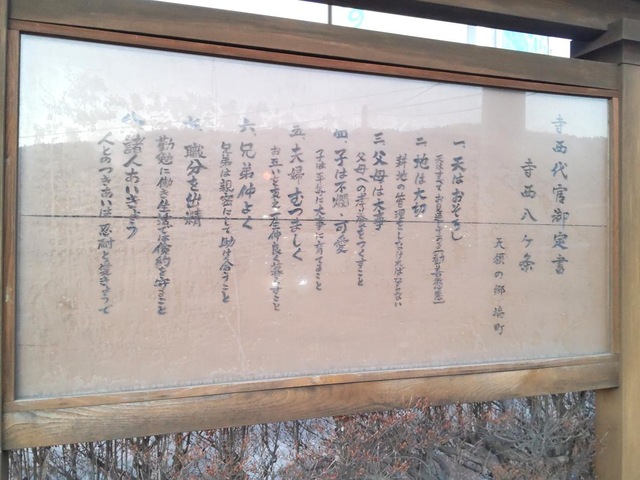 寺西代官御定書
寺西八ヶ条
天領の郷 塙町
一、天はおそろし
二、地は大切
耕地の管理をしなければならない
三、父母は大事
父母への孝養をつくすこと
四、子は不憫、可愛
子は平等に大事に育てること
五、夫婦むつましく
お互いを 一生仲良く暮すこと
六、兄弟仲よく
兄弟は親密にして助け合うこと
七、職分を出精
勤勉に働き生活では倹約を守ること
八、諸人あいきょう
人とのつきあいは忍耐と愛きょうで